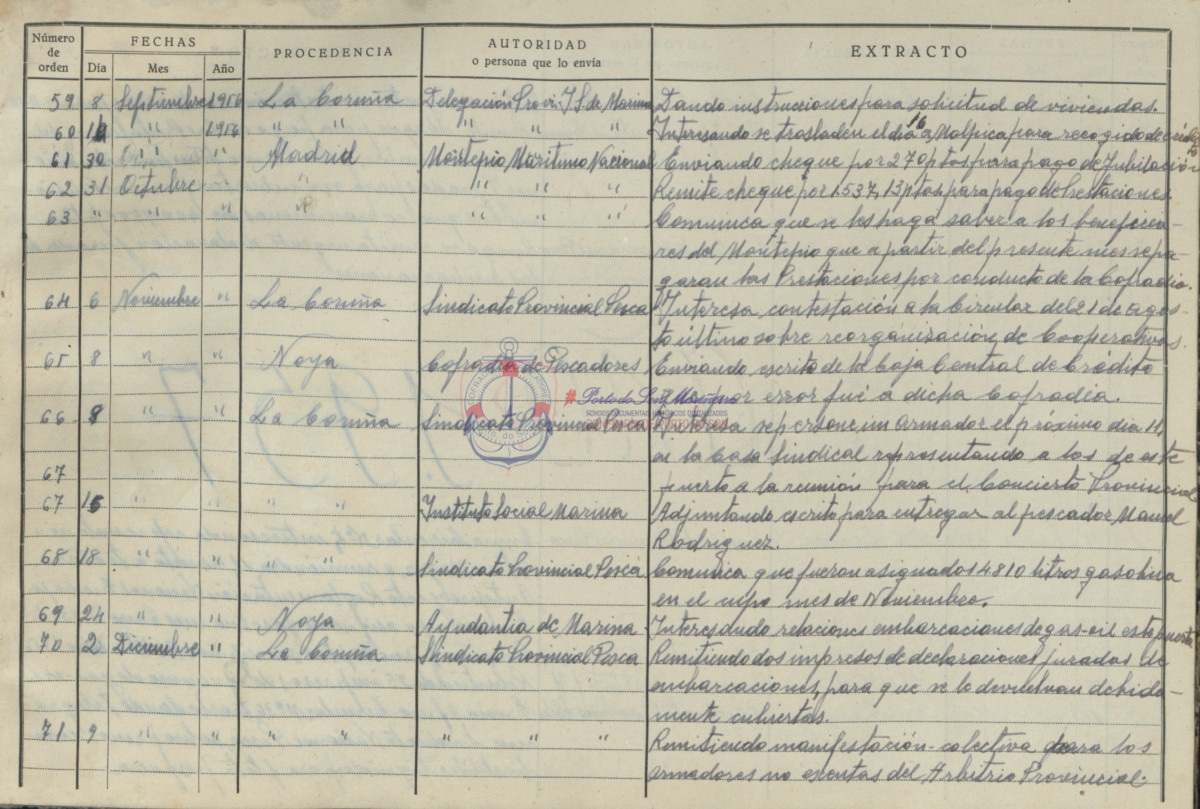 Número de orden FECHAS PROCEDENCIA AUTORIDAD o persona que lo envía EXTRACTO
Día Mes Año
59 8 Septiembre 1956 La Coruña Delegación Prov. I.S. de Marina Dando instrucciones para solicitud de viviendas.
60 " 1956 " " " " " Interesando se trasladen el día 16 a Malpica para recogida de
61 30 " " " Madrid Montepio Maritimo Nacional Enviando cheque por 270 ptas para pago de Jubilación
62 31 Octubre " " " " Remite cheque por 1.537,13 ptas para pago de Prestaciones.
63 " " " " " " " Comunica que se les haga saber a los beneficia-
res del Montepio que a partir del presente mes se pa
garan las Prestaciones por conducto de la Cofradia.
64 6 Noviembre " La Coruña Sindicato Provincial Pesca Interesa contestación a la Circular del 21 de agos-
to último sobre reorganización de Cooperativas.
65 8 " " Noya Cofradia de Pescadores Enviando escrito de la Caja Central de Crédito
que por error fué a dicha Cofradia.
66 8 " " La Coruña Sindicato Provincial Pesca Interesa se persone un armador el próximo dia 11,
en la Casa Sindical representando a los de este
67 puerto a la reunión para el Concierto Provincial
67 15 " " " " Instituto Social Marina Adjuntando escrito para entregar al pescador Manuel
Rodriguez.
68 18 " " " " Sindicato Provincial Pesca Comunica que fueron asignados 4810 litros gasolina
en el cupo mes de Noviembre.
69 24 " " Noya Ayudantia de Marina Interesando relaciones embarcaciones de gas-oil este puerto
70 2 Diciembre " La Coruña Sindicato Provincial Pesca Remitiendo dos impresos de declaraciones juradas de
embarcaciones, para que se lo devuelvan debida-
mente cubiertas.
71 9 " " " " " " " Remitiendo manifestación-colectiva para los
armadores no exentas del Arbitrio Provincial.
# Porto do Son